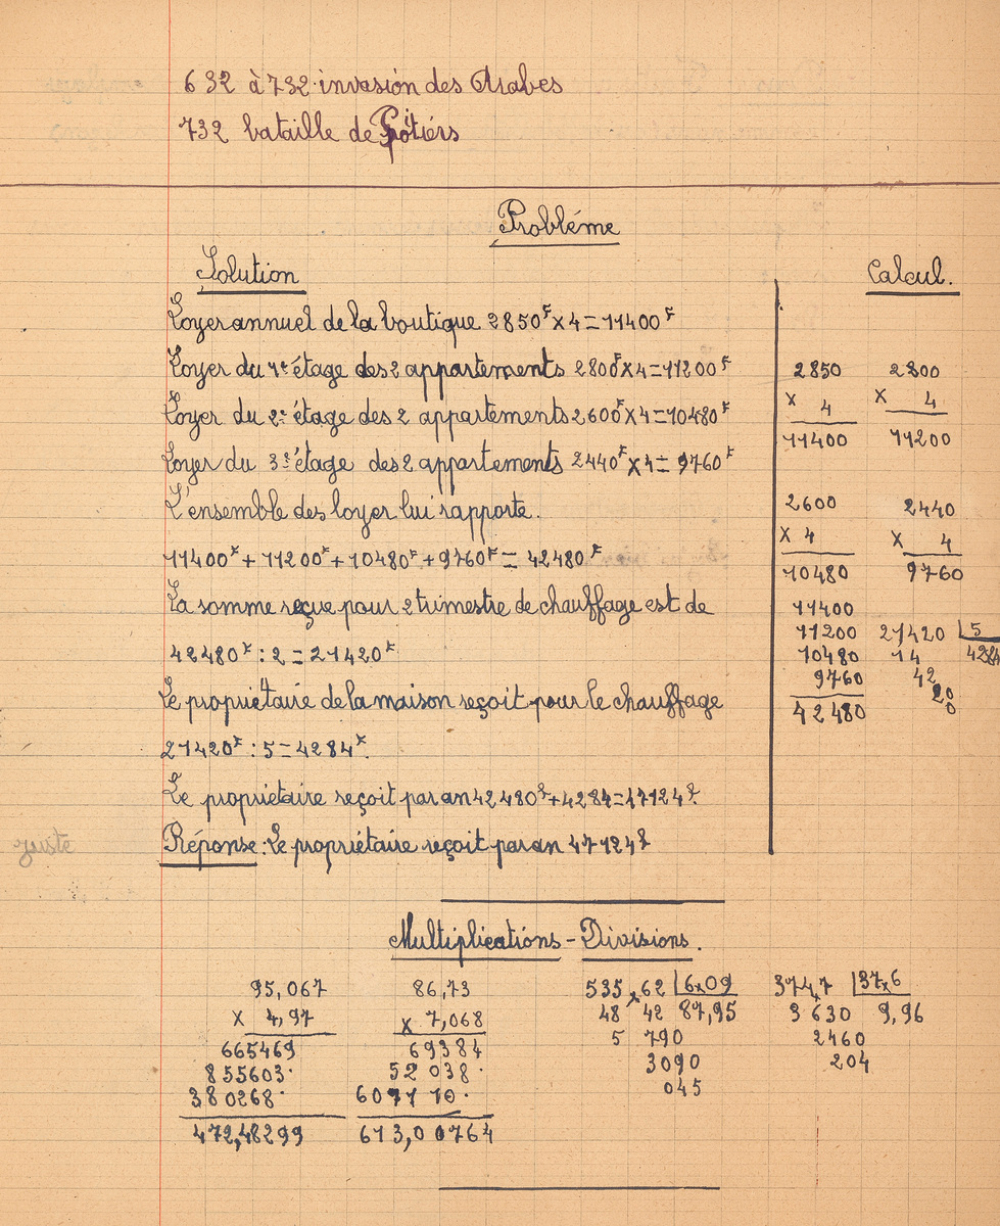 632 à 732 invasion des Arabes
732 bataille de Poitiérs
Probléme
Solution
Calcul.
Loyer annuel de la boutique 2850F x 4 = 11400F
Loyer du 1er étage des 2 appartements 2800F x 4 = 11200F
Loyer du 2e étage des 2 appartements 2600F x 4 = 10480F
Loyer du 3e étage des 2 appartements 2440F x 4 = 9760F
L'ensemble des loyer lui rapporte.
11400F + 11200F + 10480F + 9760F = 42480F
La somme reçue pour 2 trimestre de chauffage est de
42480F : 2 = 21420F
Le propriétaire de la maison reçoit pour le chauffage
21420F : 5 = 4284F.
Le propriétaire reçoit par an 42480F + 4284 = 47124F.
juste
Réponse : Le propriétaire reçoit par an 47124F
2850 2800
x 4 x 4
11400 11200
2600 2440
x 4 x 4
10480 9760
11400
11200 21420 5
10480 14 4284
9760 42
20
42480 0
Multiplications - Divisions.
95,067 86,73 535,62 6,09 374,7 37,6
x 4,97 x 7,068 48 42 87,95 3 630 9,96
665469 69384 5 790 2460
855603 52 038 3090 204
380268 6071 10 045
472,48299 613,00764